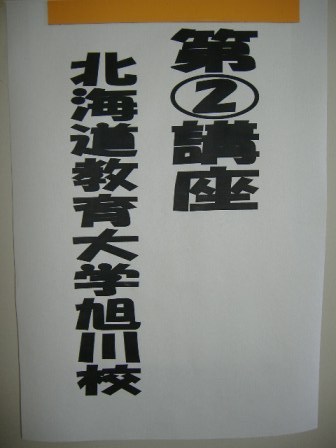 第②講座
北海道教育大学旭川校